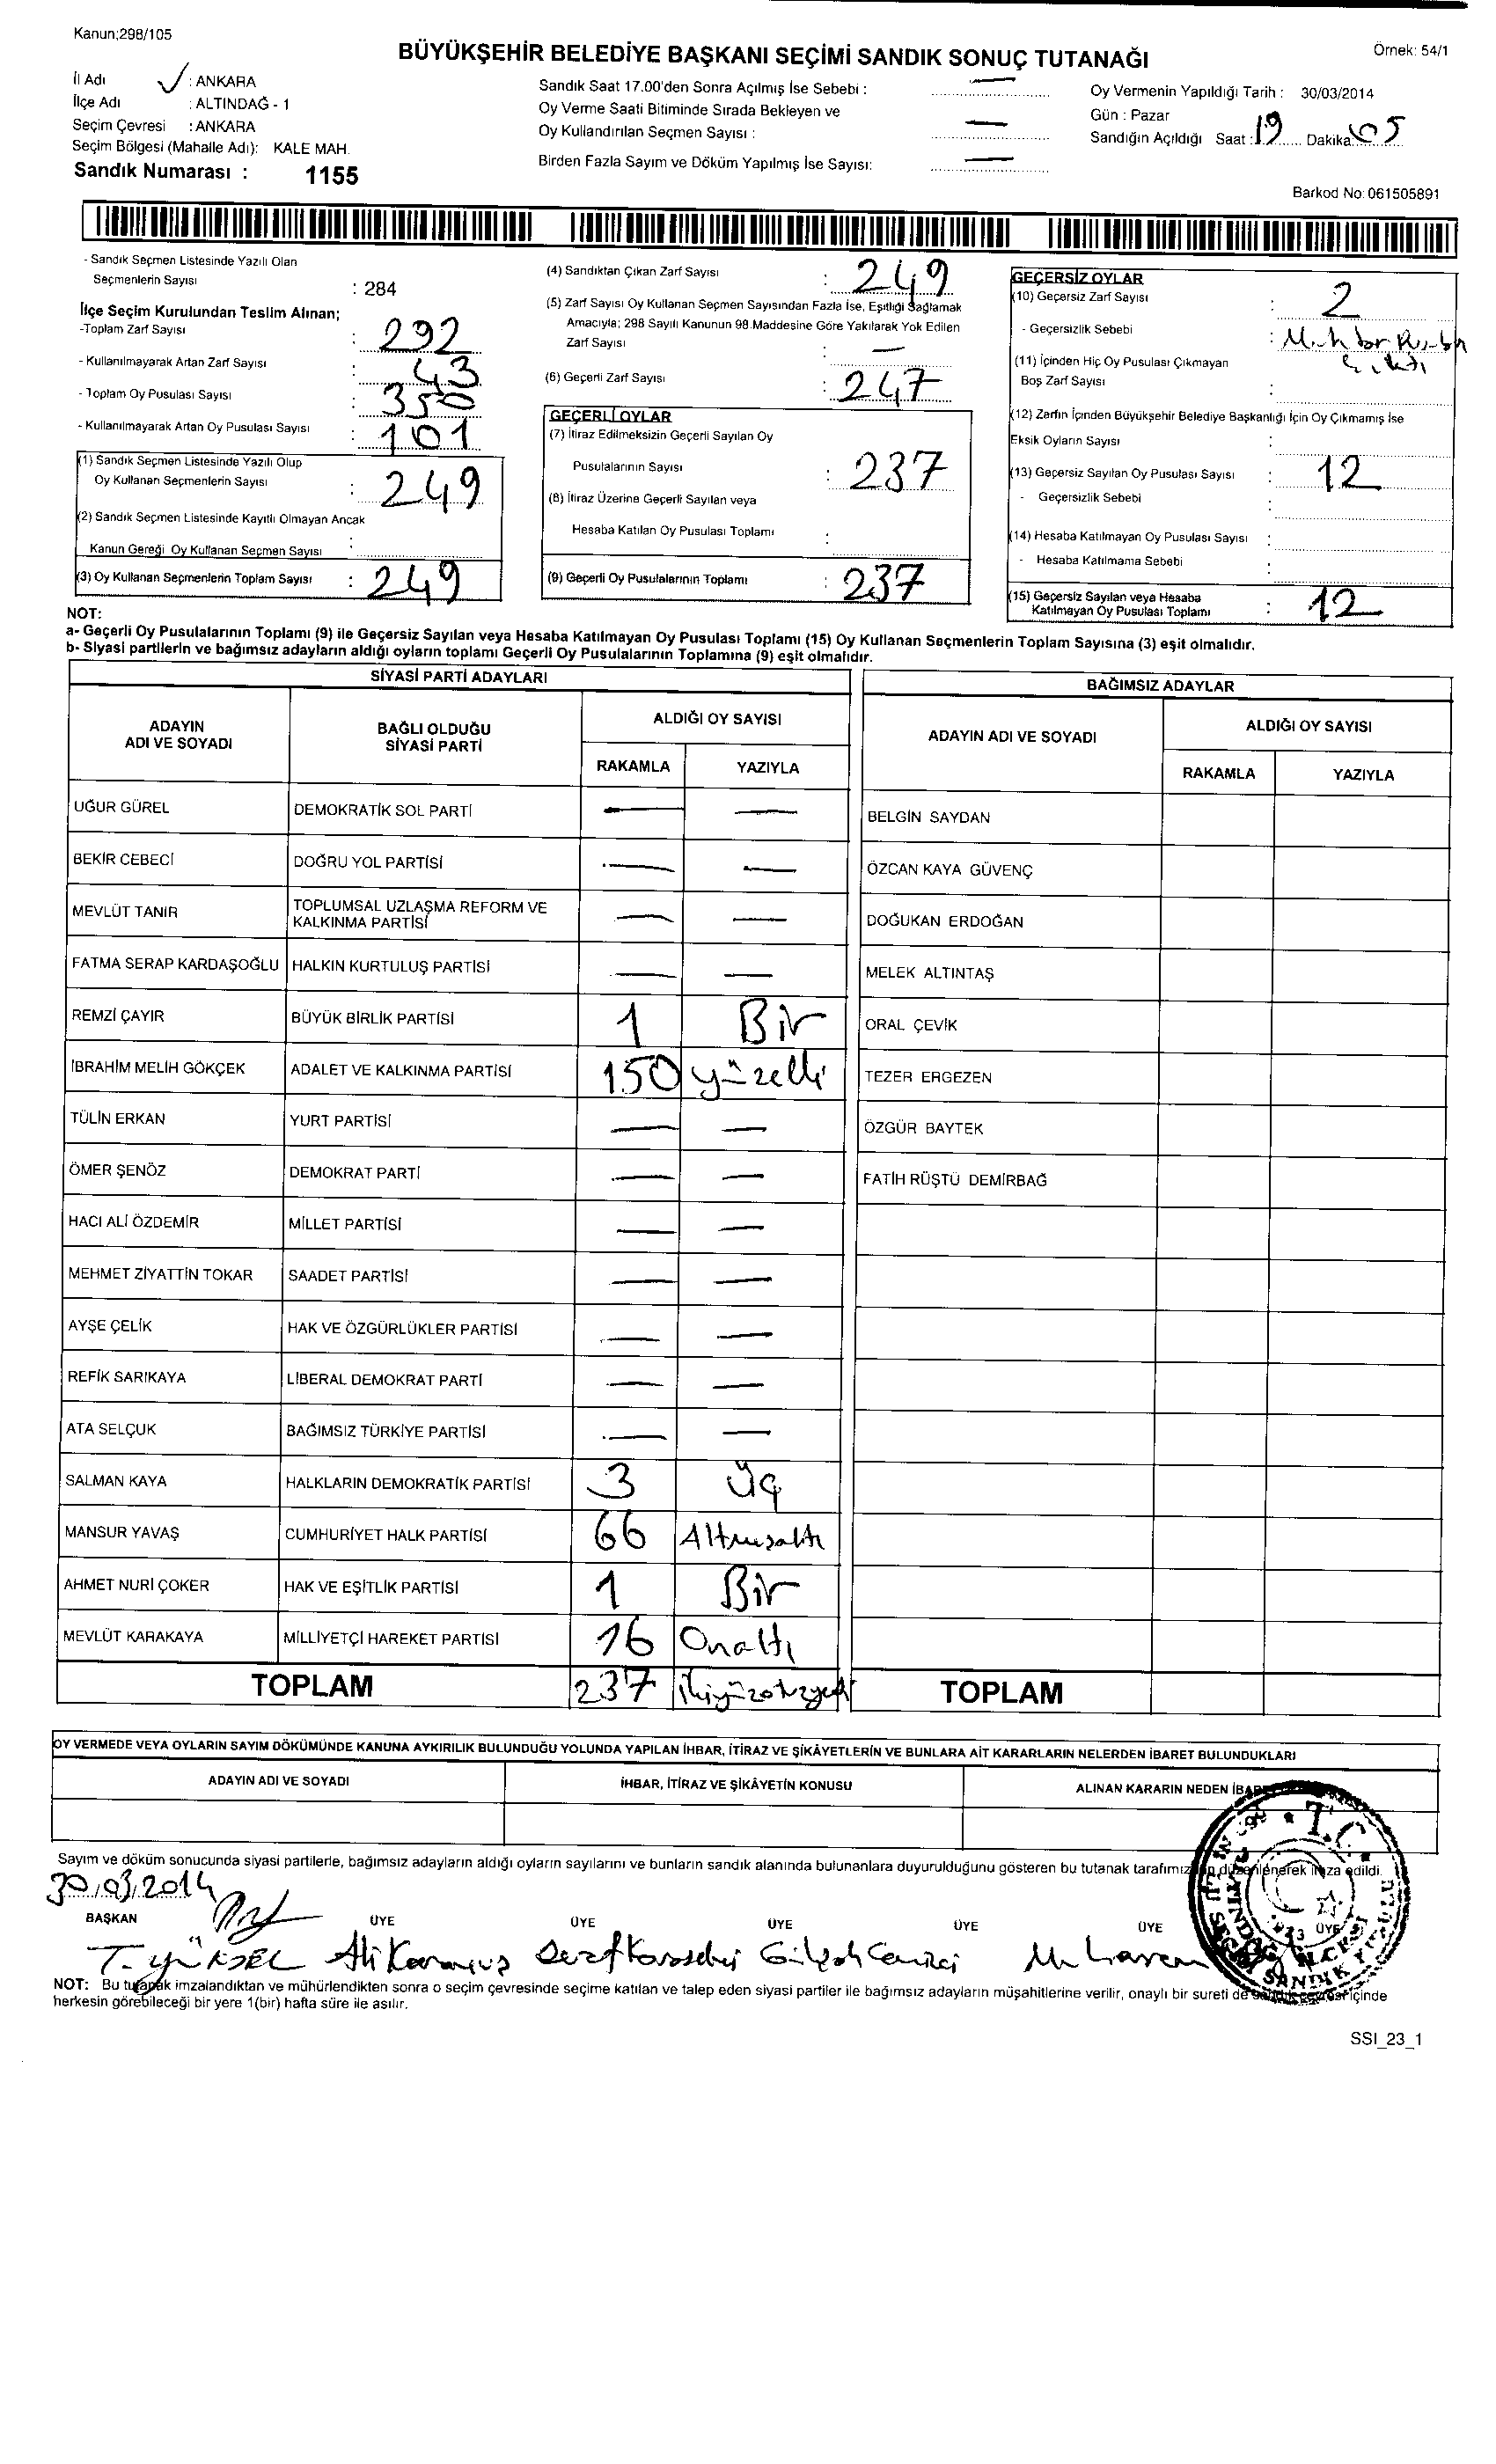 Kanun;298/105
BÜYÜKŞEHİR BELEDİYE BAŞKANI SEÇİMİ SANDIK SONUÇ TUTANAĞI
Örnek: 54/1
İl Adı : ANKARA
İlçe Adı : ALTINDAĞ - 1
Seçim Çevresi : ANKARA
Seçim Bölgesi (Mahalle Adı): KALE MAH.
Sandık Numarası : 1155
Sandık Saat 17.00'den Sonra Açılmış İse Sebebi : —
Oy Verme Saati Bitiminde Sırada Bekleyen ve
Oy Kullandırılan Seçmen Sayısı : —
Birden Fazla Sayım ve Döküm Yapılmış İse Sayısı: —
Oy Vermenin Yapıldığı Tarih : 30/03/2014
Gün : Pazar
Sandığın Açıldığı Saat : 19 Dakika 05
Barkod No: 061505891
- Sandık Seçmen Listesinde Yazılı Olan
Seçmenlerin Sayısı : 284
İlçe Seçim Kurulundan Teslim Alınan;
-Toplam Zarf Sayısı : 292
- Kullanılmayarak Artan Zarf Sayısı : 43
- Toplam Oy Pusulası Sayısı : 350
- Kullanılmayarak Artan Oy Pusulası Sayısı : 101
(1) Sandık Seçmen Listesinde Yazılı Olup
Oy Kullanan Seçmenlerin Sayısı : 249
(2) Sandık Seçmen Listesinde Kayıtlı Olmayan Ancak
Kanun Gereği Oy Kullanan Seçmen Sayısı :
(3) Oy Kullanan Seçmenlerin Toplam Sayısı : 249
(4) Sandıktan Çıkan Zarf Sayısı : 249
(5) Zarf Sayısı Oy Kullanan Seçmen Sayısından Fazla İse, Eşitliği Sağlamak
Amacıyla; 298 Sayılı Kanunun 98.Maddesine Göre Yakılarak Yok Edilen
Zarf Sayısı : —
(6) Geçerli Zarf Sayısı : 247
GEÇERLİ OYLAR
(7) İtiraz Edilmeksizin Geçerli Sayılan Oy
Pusulalarının Sayısı : 237
(8) İtiraz Üzerine Geçerli Sayılan veya
Hesaba Katılan Oy Pusulası Toplamı :
(9) Geçerli Oy Pusulalarının Toplamı : 237
GEÇERSİZ OYLAR
(10) Geçersiz Zarf Sayısı : 2
- Geçersizlik Sebebi :
(11) İçinden Hiç Oy Pusulası Çıkmayan
Boş Zarf Sayısı :
(12) Zarfın İçinden Büyükşehir Belediye Başkanlığı İçin Oy Çıkmamış İse
Eksik Oyların Sayısı :
(13) Geçersiz Sayılan Oy Pusulası Sayısı : 12
- Geçersizlik Sebebi :
(14) Hesaba Katılmayan Oy Pusulası Sayısı :
- Hesaba Katılmama Sebebi :
(15) Geçersiz Sayılan veya Hesaba
Katılmayan Oy Pusulası Toplamı : 12
NOT:
a- Geçerli Oy Pusulalarının Toplamı (9) ile Geçersiz Sayılan veya Hesaba Katılmayan Oy Pusulası Toplamı (15) Oy Kullanan Seçmenlerin Toplam Sayısına (3) eşit olmalıdır.
b- Siyasi partilerin ve bağımsız adayların aldığı oyların toplamı Geçerli Oy Pusulalarının Toplamına (9) eşit olmalıdır.
SİYASİ PARTİ ADAYLARI
ADAYIN ADI VE SOYADI
BAĞLI OLDUĞU SİYASİ PARTİ
ALDIĞI OY SAYISI
RAKAMLA YAZIYLA
UĞUR GÜREL DEMOKRATİK SOL PARTİ — —
BEKİR CEBECİ DOĞRU YOL PARTİSİ — —
MEVLÜT TANIR TOPLUMSAL UZLAŞMA REFORM VE KALKINMA PARTİSİ — —
FATMA SERAP KARDAŞOĞLU HALKIN KURTULUŞ PARTİSİ — —
REMZİ ÇAYIR BÜYÜK BİRLİK PARTİSİ 1 Bir
İBRAHİM MELİH GÖKÇEK ADALET VE KALKINMA PARTİSİ 150 yüzelli
TÜLİN ERKAN YURT PARTİSİ — —
ÖMER ŞENÖZ DEMOKRAT PARTİ — —
HACI ALİ ÖZDEMİR MİLLET PARTİSİ — —
MEHMET ZİYATTİN TOKAR SAADET PARTİSİ — —
AYŞE ÇELİK HAK VE ÖZGÜRLÜKLER PARTİSİ — —
REFİK SARIKAYA LİBERAL DEMOKRAT PARTİ — —
ATA SELÇUK BAĞIMSIZ TÜRKİYE PARTİSİ — —
SALMAN KAYA HALKLARIN DEMOKRATİK PARTİSİ 3 Üç
MANSUR YAVAŞ CUMHURİYET HALK PARTİSİ 66 Altmışaltı
AHMET NURİ ÇOKER HAK VE EŞİTLİK PARTİSİ 1 Bir
MEVLÜT KARAKAYA MİLLİYETÇİ HAREKET PARTİSİ 16 Onaltı
TOPLAM 237 ikiyüzotuzyedi
BAĞIMSIZ ADAYLAR
ADAYIN ADI VE SOYADI
ALDIĞI OY SAYISI
RAKAMLA YAZIYLA
BELGİN SAYDAN
ÖZCAN KAYA GÜVENÇ
DOĞUKAN ERDOĞAN
MELEK ALTINTAŞ
ORAL ÇEVİK
TEZER ERGEZEN
ÖZGÜR BAYTEK
FATİH RÜŞTÜ DEMİRBAĞ
TOPLAM
OY VERMEDE VEYA OYLARIN SAYIM DÖKÜMÜNDE KANUNA AYKIRILIK BULUNDUĞU YOLUNDA YAPILAN İHBAR, İTİRAZ VE ŞİKÂYETLERİN VE BUNLARA AİT KARARLARIN NELERDEN İBARET BULUNDUKLARI
ADAYIN ADI VE SOYADI İHBAR, İTİRAZ VE ŞİKÂYETİN KONUSU ALINAN KARARIN NEDEN
Sayım ve döküm sonucunda siyasi partilerle, bağımsız adayların aldığı oyların sayılarını ve bunların sandık alanında bulunanlara duyurulduğunu gösteren bu tutanak düzenlenerek imza edildi.
30.03.2014
BAŞKAN ÜYE ÜYE ÜYE ÜYE ÜYE ÜYE
T. YÜKSEL
T.C.
NOT: Bu tutanak imzalandıktan ve mühürlendikten sonra o seçim çevresinde seçime katılan ve talep eden siyasi partiler ile bağımsız adayların müşahitlerine verilir, onaylı bir sureti de içinde
herkesin görebileceği bir yere 1(bir) hafta süre ile asılır.
SSI_23_1